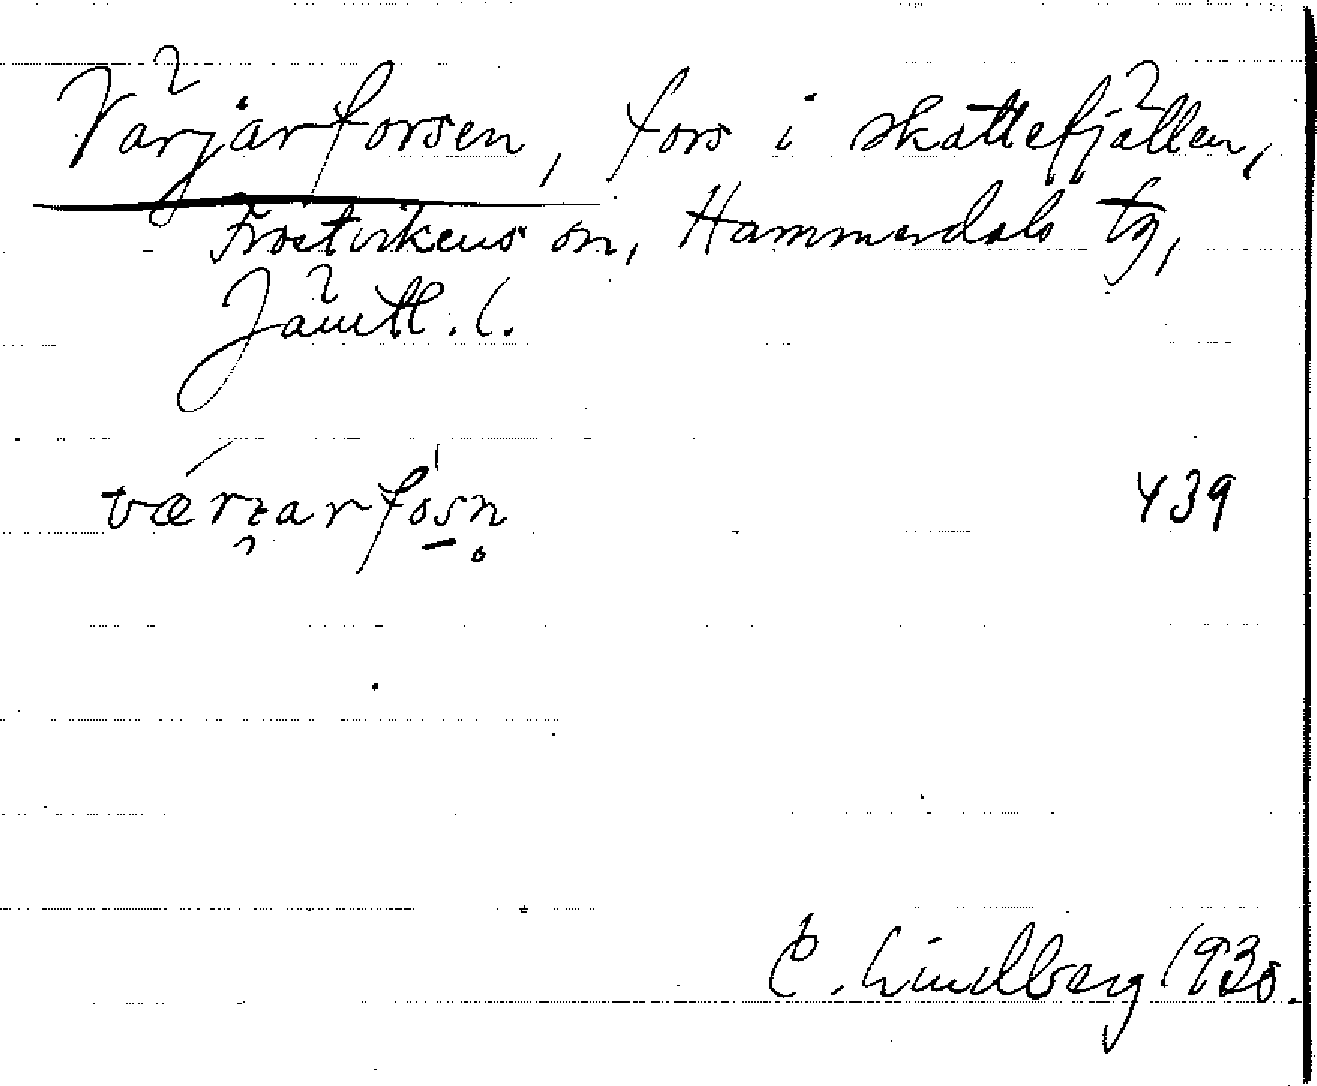 Värjarforsen, fors i skattefjällen,
Frostvikens sn, Hammerdals tg,
Jämtl. l.
værjarfos̠n̥ 439
C. Lindberg 1930.